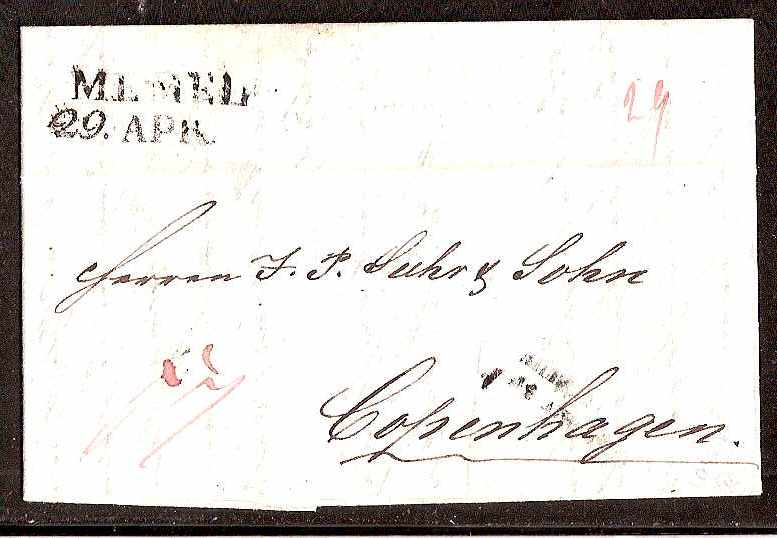 MEMEL
29. APR.
29
Herren J. P. Suhr & Sohn
Copenhagen.